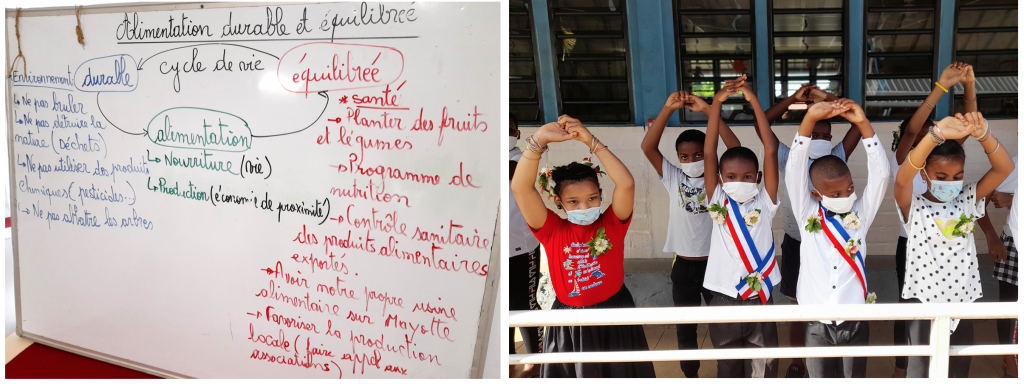 Alimentation durable et équilibreé
cycle de vie
Environnement:
durable
↳ Ne pas bruler
↳ Ne pas détruire la
nature (Déchets)
↳ Ne pas utiliser des produits
chimiques (pesticides...)
→ Ne pas abattre les arbres
alimentation
↳ Nourriture (vie)
↳ Production (économie de proximité)
équilibreé
* santé
→ Planter des fruits
et légumes
→ Programme de
nutrition
→ Contrôle sanitaire
des produits alimentaires
exportés.
→ Avoir notre propre usine
alimentaire sur Mayotte
→ Favoriser la production
locale (faire appel aux
associations)